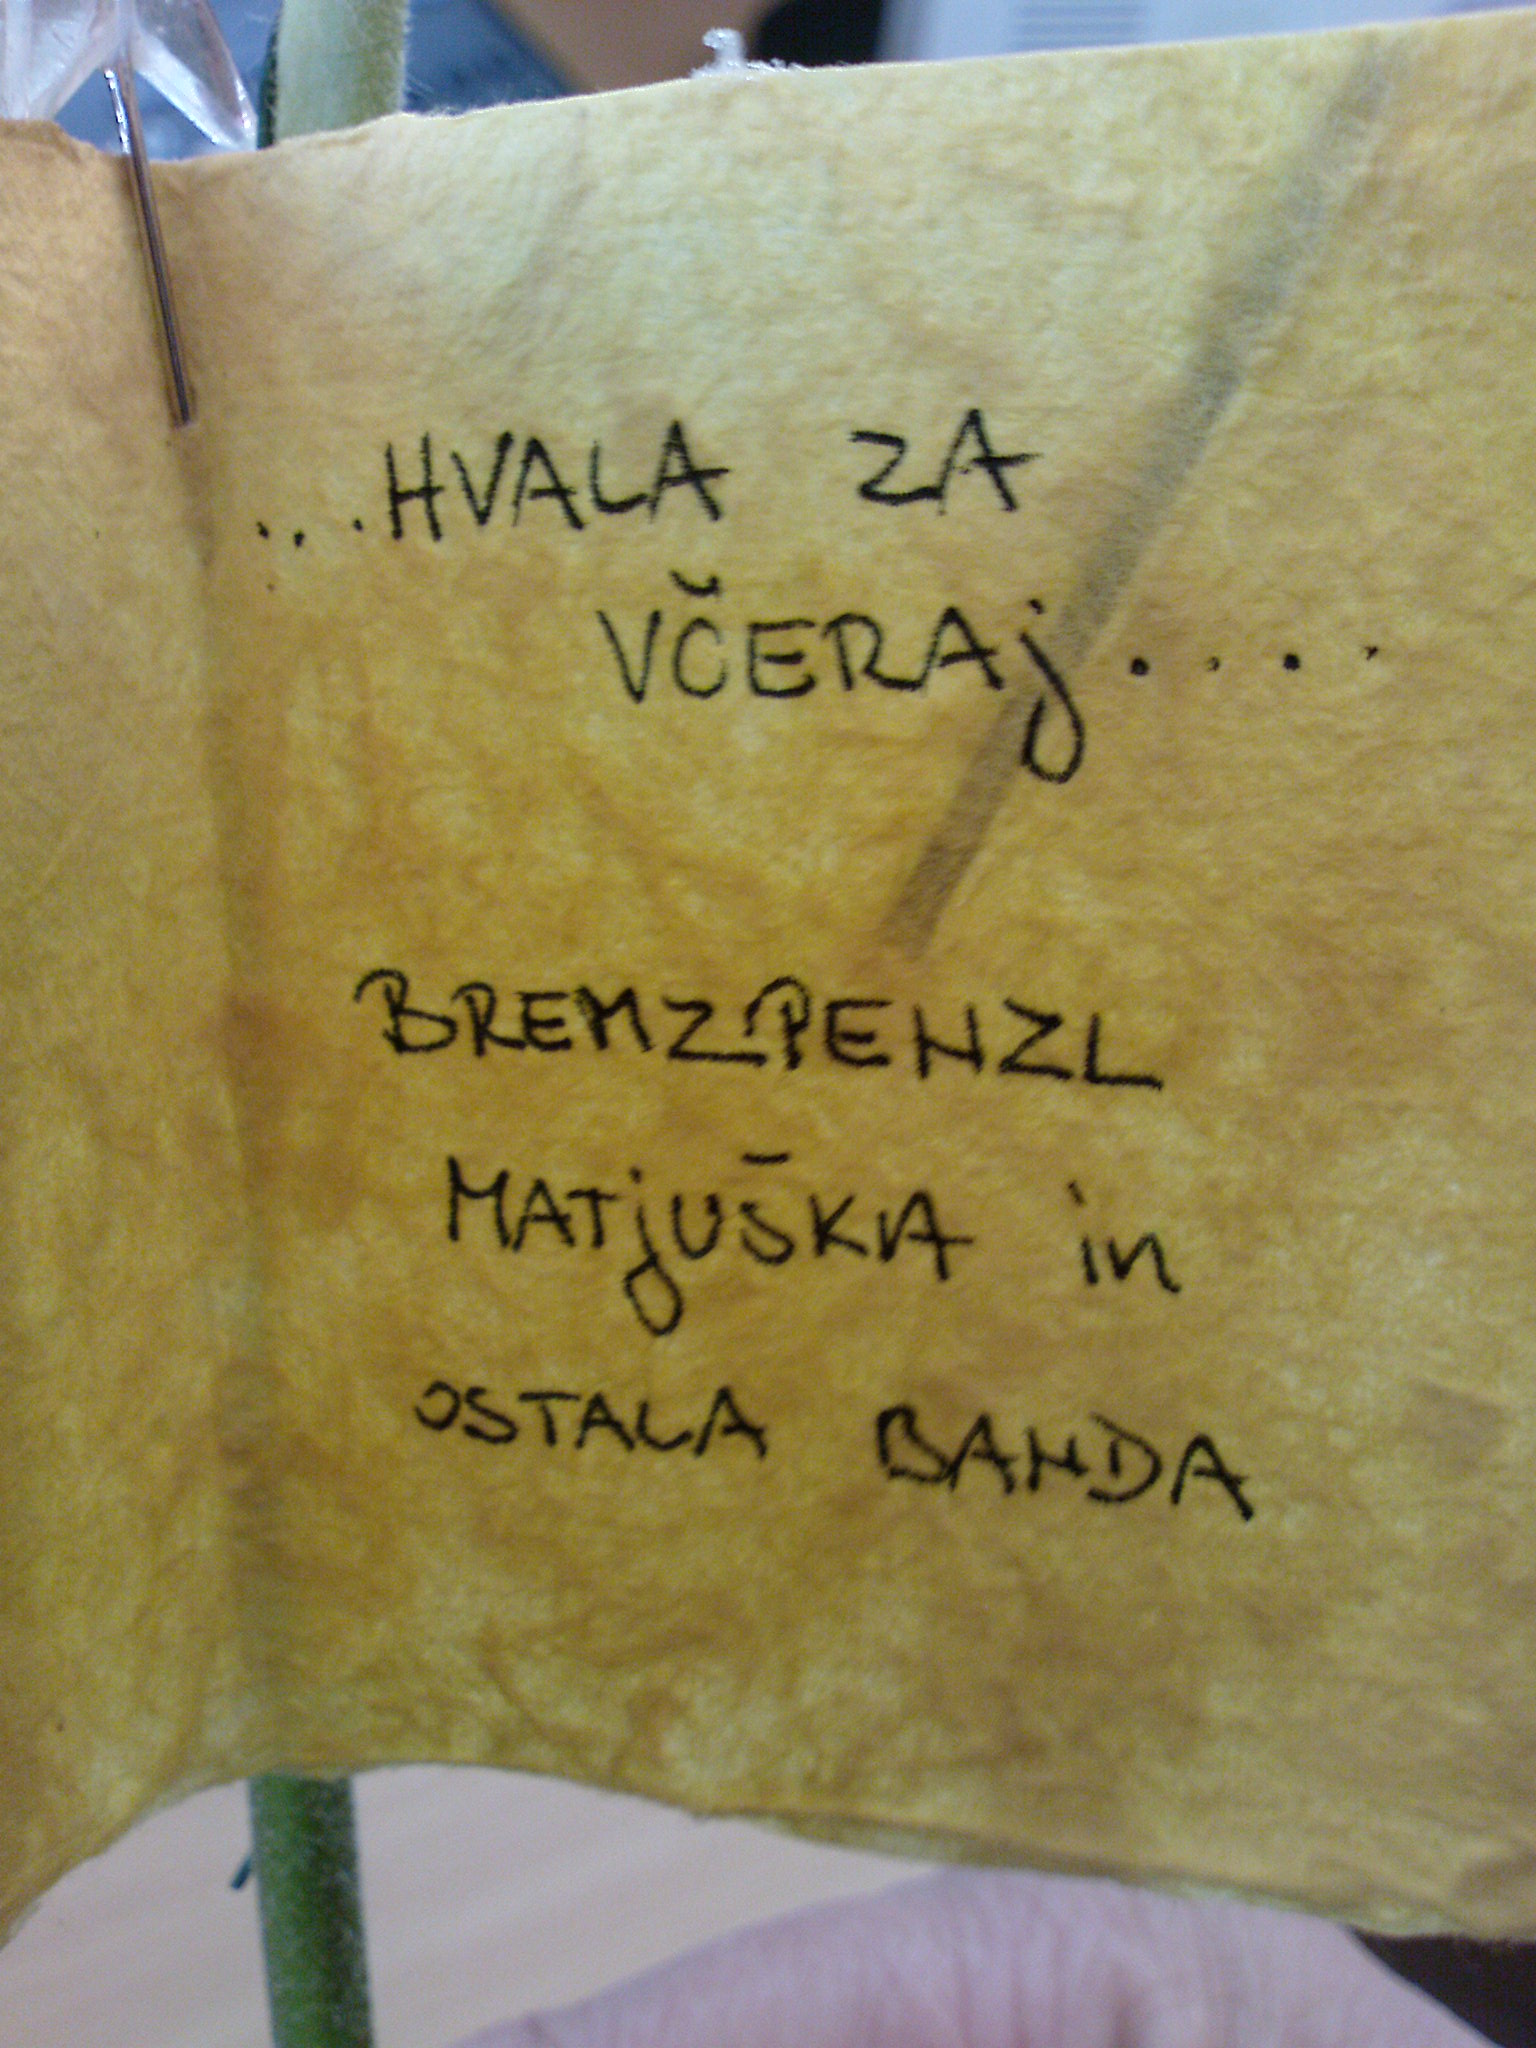 ...HVALA ZA
VČERAj....
BREMZPENZL
MATjUŠKA in
OSTALA BANDA